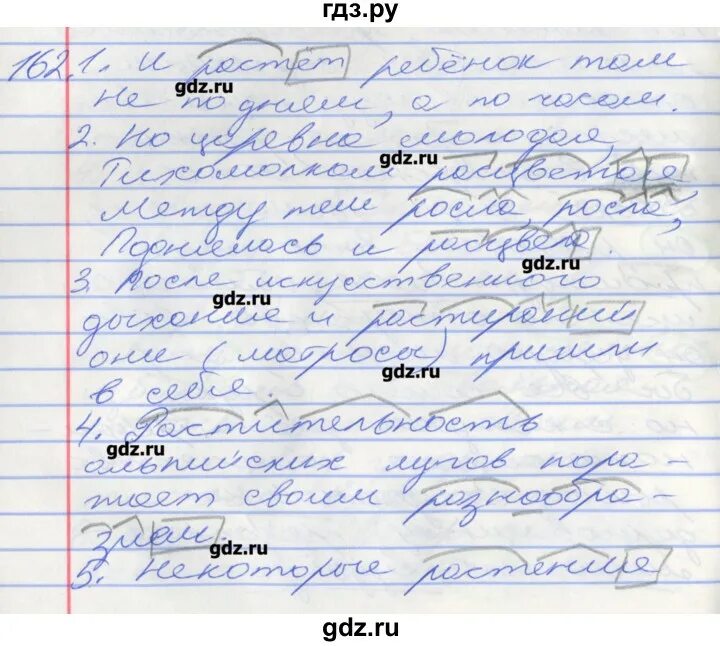 гдз.ру
162. 1. И растёт ребёнок там
gdz.ru
Не по дням, а по часам.
2. Но царевна молодая,
gdz.ru
Тихомолком расцветая,
Между тем росла, росла,
Поднялась и расцвела.
gdz.ru
3. После искусственного
gdz.ru
дыхания и растираний
они (матросы) пришли
gdz.ru
в себя.
4. Растительность
gdz.ru
альпийских лугов пора-
жает своим разнообра-
зием.
gdz.ru
5. Некоторые растения
gdz.ru